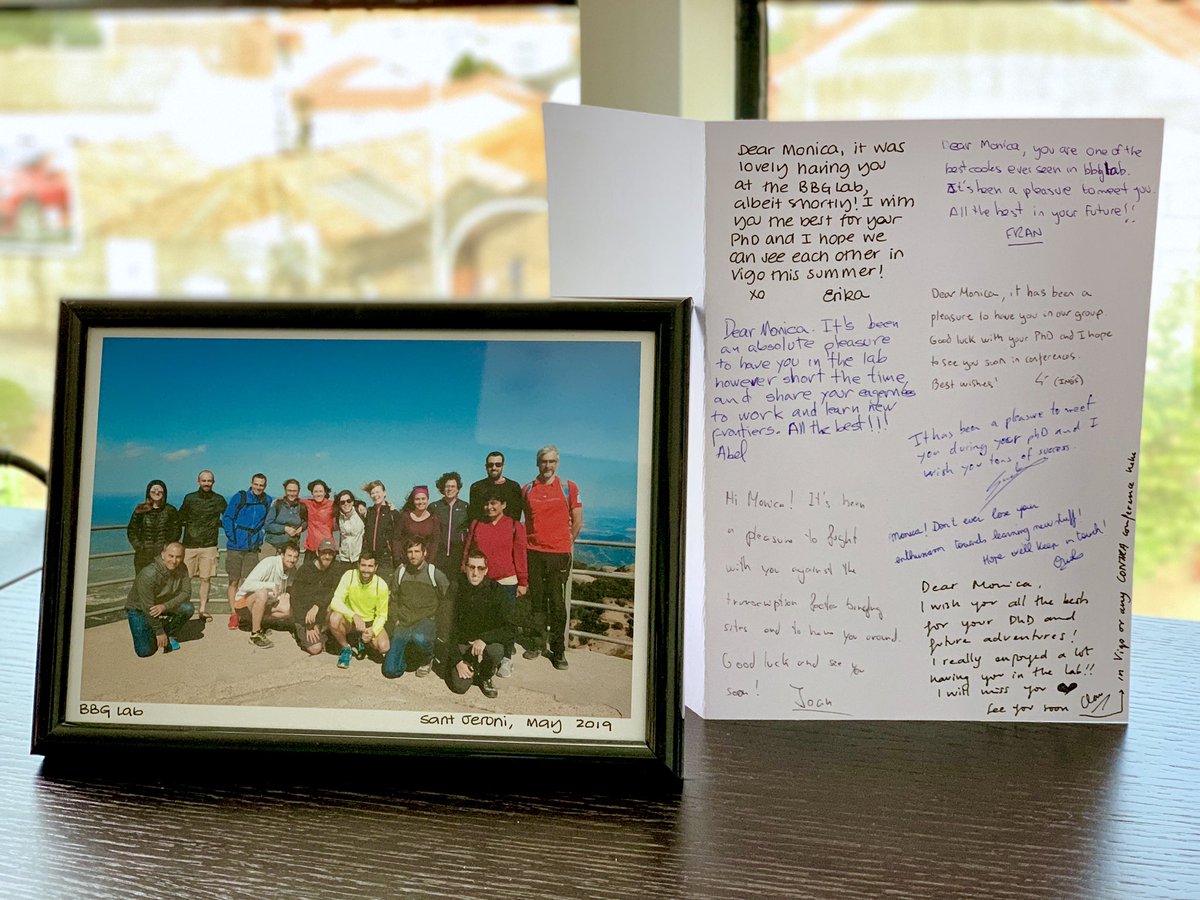 BBG Lab
Sant Jeroni, May 2019
Dear Monica, it was
lovely having you
at the BBG Lab,
albeit shortly! I wish
you the best for your
PhD and I hope we
can see each other in
Vigo this summer!
xo Erika
Dear Monica. It's been
an absolute pleasure
to have you in the lab
however short the time,
and share your eagerness
to work and learn new
frontiers. All the best!!!
Abel
Hi Monica! It's been
a pleasure to fight
with you against the
transcription factor binding
sites and to have you around.
Good luck and see you
soon!
Joan
Dear Monica, you are one of the
best cooks ever seen in bbglab.
It's been a pleasure to meet you.
All the best in your future!!
FRAN
Dear Monica, it has been a
pleasure to have you in our group.
Good luck with your PhD and I hope
to see you soon in conferences.
Best wishes! (INÉS)
It has been a pleasure to meet
you during your phD and I
wish you tons of success.
¡monica! Don't ever lose your
enthusiasm towards learning new stuff!
Hope we'll keep in touch!
Dear Monica,
I wish you all the best
for your PhD and
future adventures!
I really enjoyed a lot
having you in the lab!!
I will miss you ❤
See you soon
in Vigo or any CONTRA conference